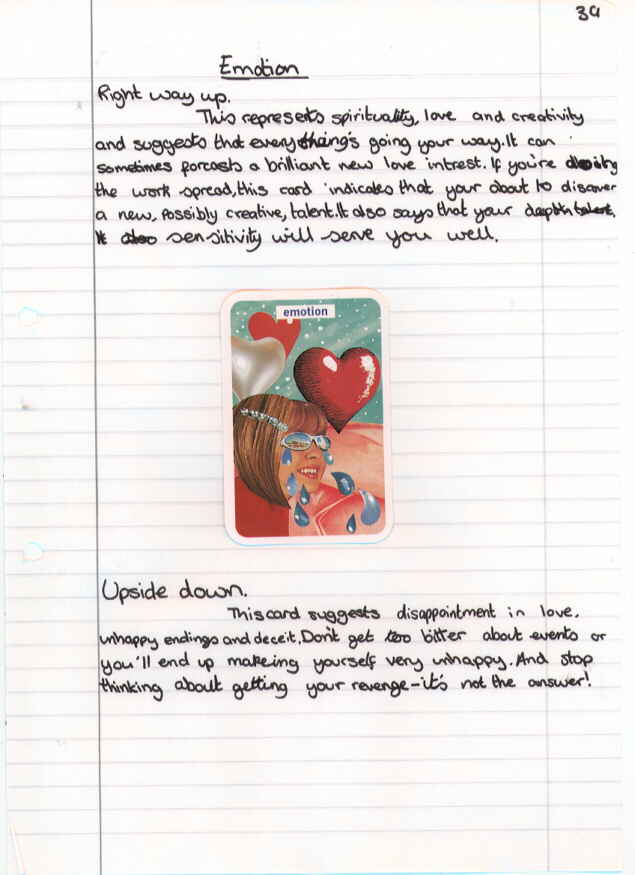 39
Emotion
Right way up.
This represents spirituality, love and creativity
and suggests that everything's going your way. It can
sometimes forcasts a brilliant new love intrest. If you're
the work spread, this card indicates that your about to discover
a new, possibly creative, talent. It also says that your depth
sensitivity will serve you well.
emotion
Upside down.
This card suggests disappointment in love,
unhappy endings and deceit. Don't get too bitter about events or
you'll end up makeing yourself very unhappy. And stop
thinking about getting your revenge - it's not the answer!